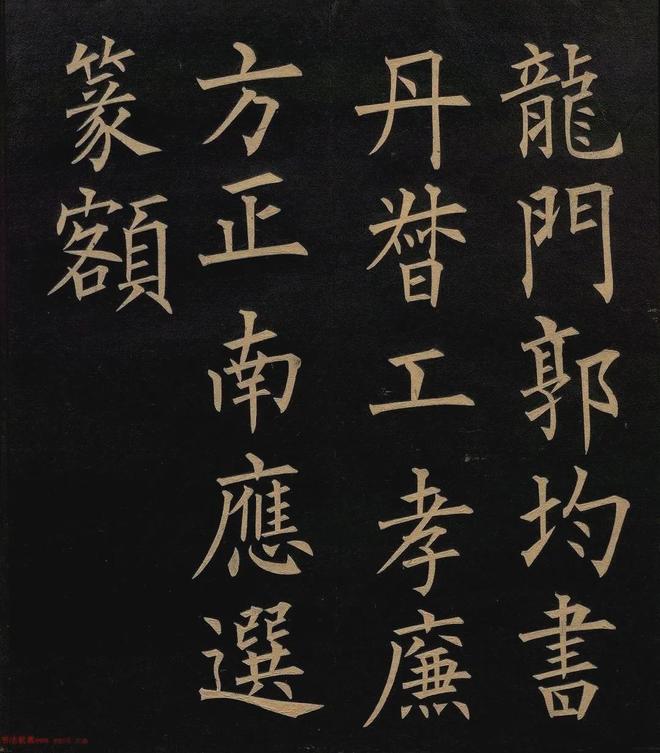 龍門郭均書
丹督工孝廉
方正南應選
篆額